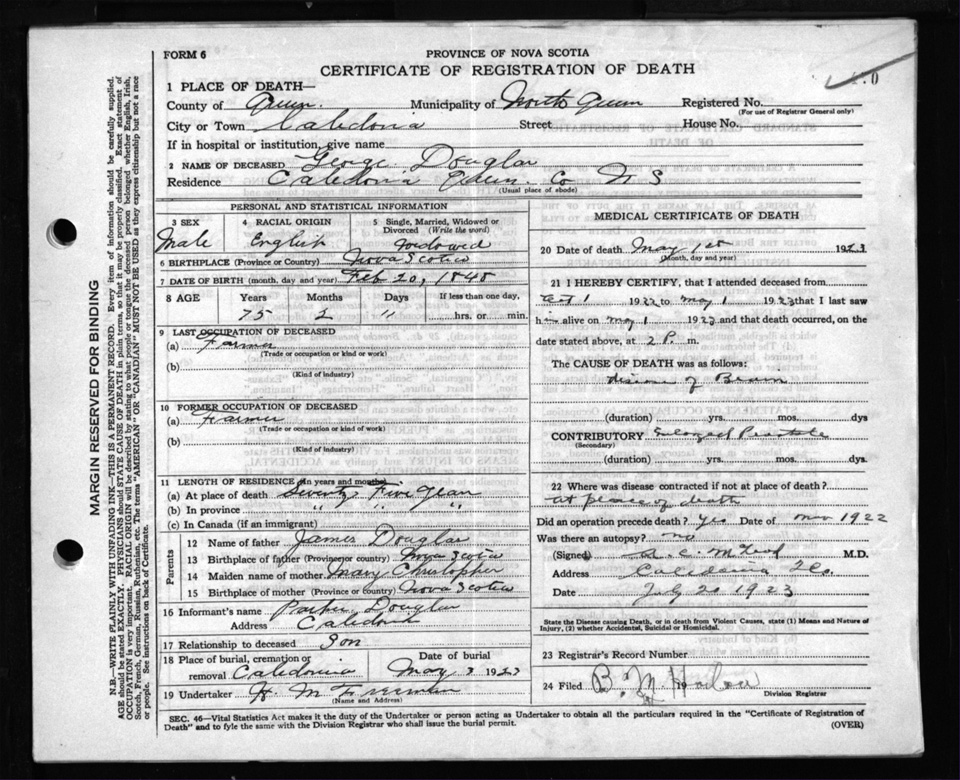 FORM 6
PROVINCE OF NOVA SCOTIA
CERTIFICATE OF REGISTRATION OF DEATH
1 PLACE OF DEATH—
County of Queens. Municipality of North Queens Registered No.
(For use of Registrar General only)
City or Town Caledonia Street House No.
If in hospital or institution, give name
2 NAME OF DECEASED George Douglas
Residence Caledonia Queens Co N S
(Usual place of abode)
PERSONAL AND STATISTICAL INFORMATION
3 SEX 4 RACIAL ORIGIN 5 Single, Married, Widowed or Divorced (Write the word)
Male English Widowed
6 BIRTHPLACE (Province or Country) Nova Scotia
7 DATE OF BIRTH (month, day and year) Feb 20, 1848
8 AGE Years Months Days If less than one day,
75 2 11 hrs. or min.
9 LAST OCCUPATION OF DECEASED
(a) Farmer
(Trade or occupation or kind or work)
(b)
(Kind of industry)
10 FORMER OCCUPATION OF DECEASED
(a) Farmer
(Trade or occupation or kind or work)
(b)
(Kind of industry)
11 LENGTH OF RESIDENCE (in years and months)
(a) At place of death Seventy Five Years
(b) In province " " "
(c) In Canada (if an immigrant)
Parents
12 Name of father James Douglas
13 Birthplace of father (Province or country) Nova Scotia
14 Maiden name of mother Mary Christopher
15 Birthplace of mother (Province or country) Nova Scotia
16 Informant's name Parker Douglas
Address Caledonia
17 Relationship to deceased Son
18 Place of burial, cremation or removal Caledonia Date of burial May 3 1923
19 Undertaker H. M Freeman
(Name and Address)
MEDICAL CERTIFICATE OF DEATH
20 Date of death May 1st 1923
(Month, day and year)
21 I HEREBY CERTIFY, that I attended deceased from
Oct 1 1922 to May 1 1923 that I last saw
him alive on May 1 1923 and that death occurred, on the
date stated above, at 2 P. m.
The CAUSE OF DEATH was as follows:
disease of Brain
(duration) yrs. mos. dys
CONTRIBUTORY Enlarged Prostate
(Secondary)
(duration) yrs. mos. dys.
22 Where was disease contracted if not at place of death?
at place of death
Did an operation precede death? yes Date of Nov 1922
Was there an autopsy? no
(Signed) M.D.
Address Caledonia
Date July 20 1923
State the Disease causing Death, or in death from Violent Causes, state (1) Means and Nature of Injury, (2) whether Accidental, Suicidal or Homicidal.
23 Registrar's Record Number
24 Filed B. M. 19
Division Registrar
SEC. 46—Vital Statistics Act makes it the duty of the Undertaker or person acting as Undertaker to obtain all the particulars required in the "Certificate of Registration of
Death" and to fyle the same with the Division Registrar who shall issue the burial permit. (OVER)
MARGIN RESERVED FOR BINDING
N.B.—WRITE PLAINLY WITH UNFADING INK—THIS IS A PERMANENT RECORD. Every item of information should be carefully supplied.
AGE should be stated EXACTLY. PHYSICIANS should STATE CAUSE OF DEATH in plain terms, so that it may be properly classified. Exact statement of
OCCUPATION is very important. RACIAL ORIGIN will be described by stating to what people or tongue the deceased person belonged whether English, Irish,
Scotch, French, German, Russian, Ruthenian, etc. The terms "AMERICAN" or "CANADIAN" MUST NOT BE USED as they express citizenship but not a race
or people. See instructions on back of Certificate.